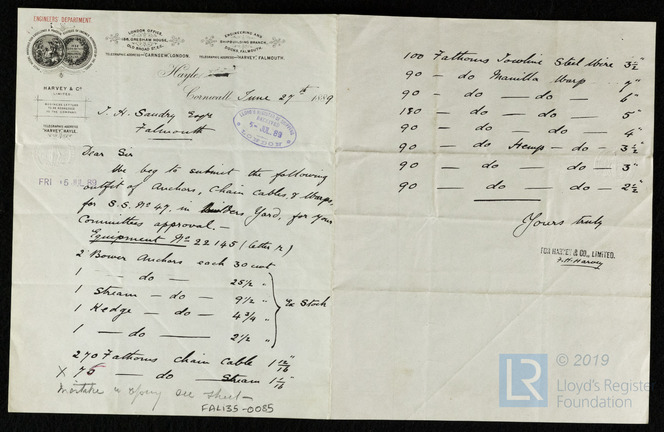 ENGINEERS DEPARTMENT.
LONDON OFFICE,
186, GRESHAM HOUSE,
OLD BROAD ST. E.C.
TELEGRAPHIC ADDRESS "CARNSEW, LONDON.
ENGINEERING AND
SHIPBUILDING BRANCH,
FALMOUTH.
TELEGRAPHIC ADDRESS "HARVEY", FALMOUTH.
HARVEY & Co
LIMITED.
TELEGRAPHIC ADDRESS
"HARVEY," HAYLE.
Hayle
Cornwall June 27th 1889
J. H. Sandry Esqre
Falmouth
5 JUL 89
LONDON
FRI 5 JUL 89
Dear Sir
We beg to submit the following
outfit of Anchors, Chain Cables, & Warps,
for S.S. No 47, in Builders Yard, for your
Committees approval. —
Equipment No 22145 (letter r)
2 Bower Anchors each 30 cwt
1 — do — 25 1/2 "
1 Stream — do — 9 1/2 "
1 Kedge — do — 4 3/4 "
1 — do — 2 1/2 "
Ex Stock
270 Fathoms Chain Cable 1 12/16"
X 75 — do — Stream 1 1/16"
Mistake in copy see sheet
FAL135-0085
100 Fathoms Towline Steel Wire 3 1/2"
90 — do Manilla Warp 7"
90 — do — do — 6"
180 — do — do 5"
90 — do — do — 4"
90 — do Hemp — do — 3 1/2"
90 — do — do — 3"
90 — do — do — 2 1/2"
Yours truly
FOR HARVEY & CO., LIMITED.
F. H. Harvey
LR
© 2019
Lloyd's Register
Foundation